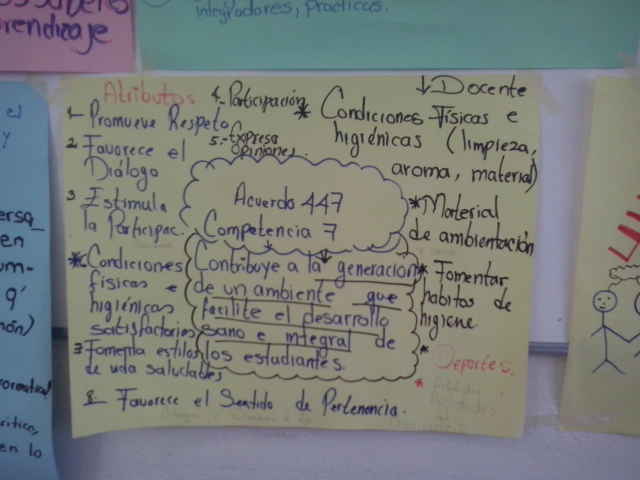 rendizaje
integradores, prácticas.
Atributos
1- Promueve Respeto
2 Favorece el
Diálogo
3 Estimula
la Participac.
4- Participación
5.- Expresa
Opiniones
* Condiciones
físicas e
higiénicas
satisfactorias
3 Fomenta estilos
de vida saludables
8- Favorece el Sentido de Pertenencia.
Acuerdo 447
Competencia 7
Contribuye a la generación
de un ambiente que
facilite el desarrollo
sano e integral de
los estudiantes.
↓ Docente
* Condiciones Físicas e
higiénicas (limpieza,
aroma, material)
* Material
de ambientación
* Fomentar
habitos de
higiene
*
Deportes.
*
el
y
ersa_
en
um-
q'
en lo